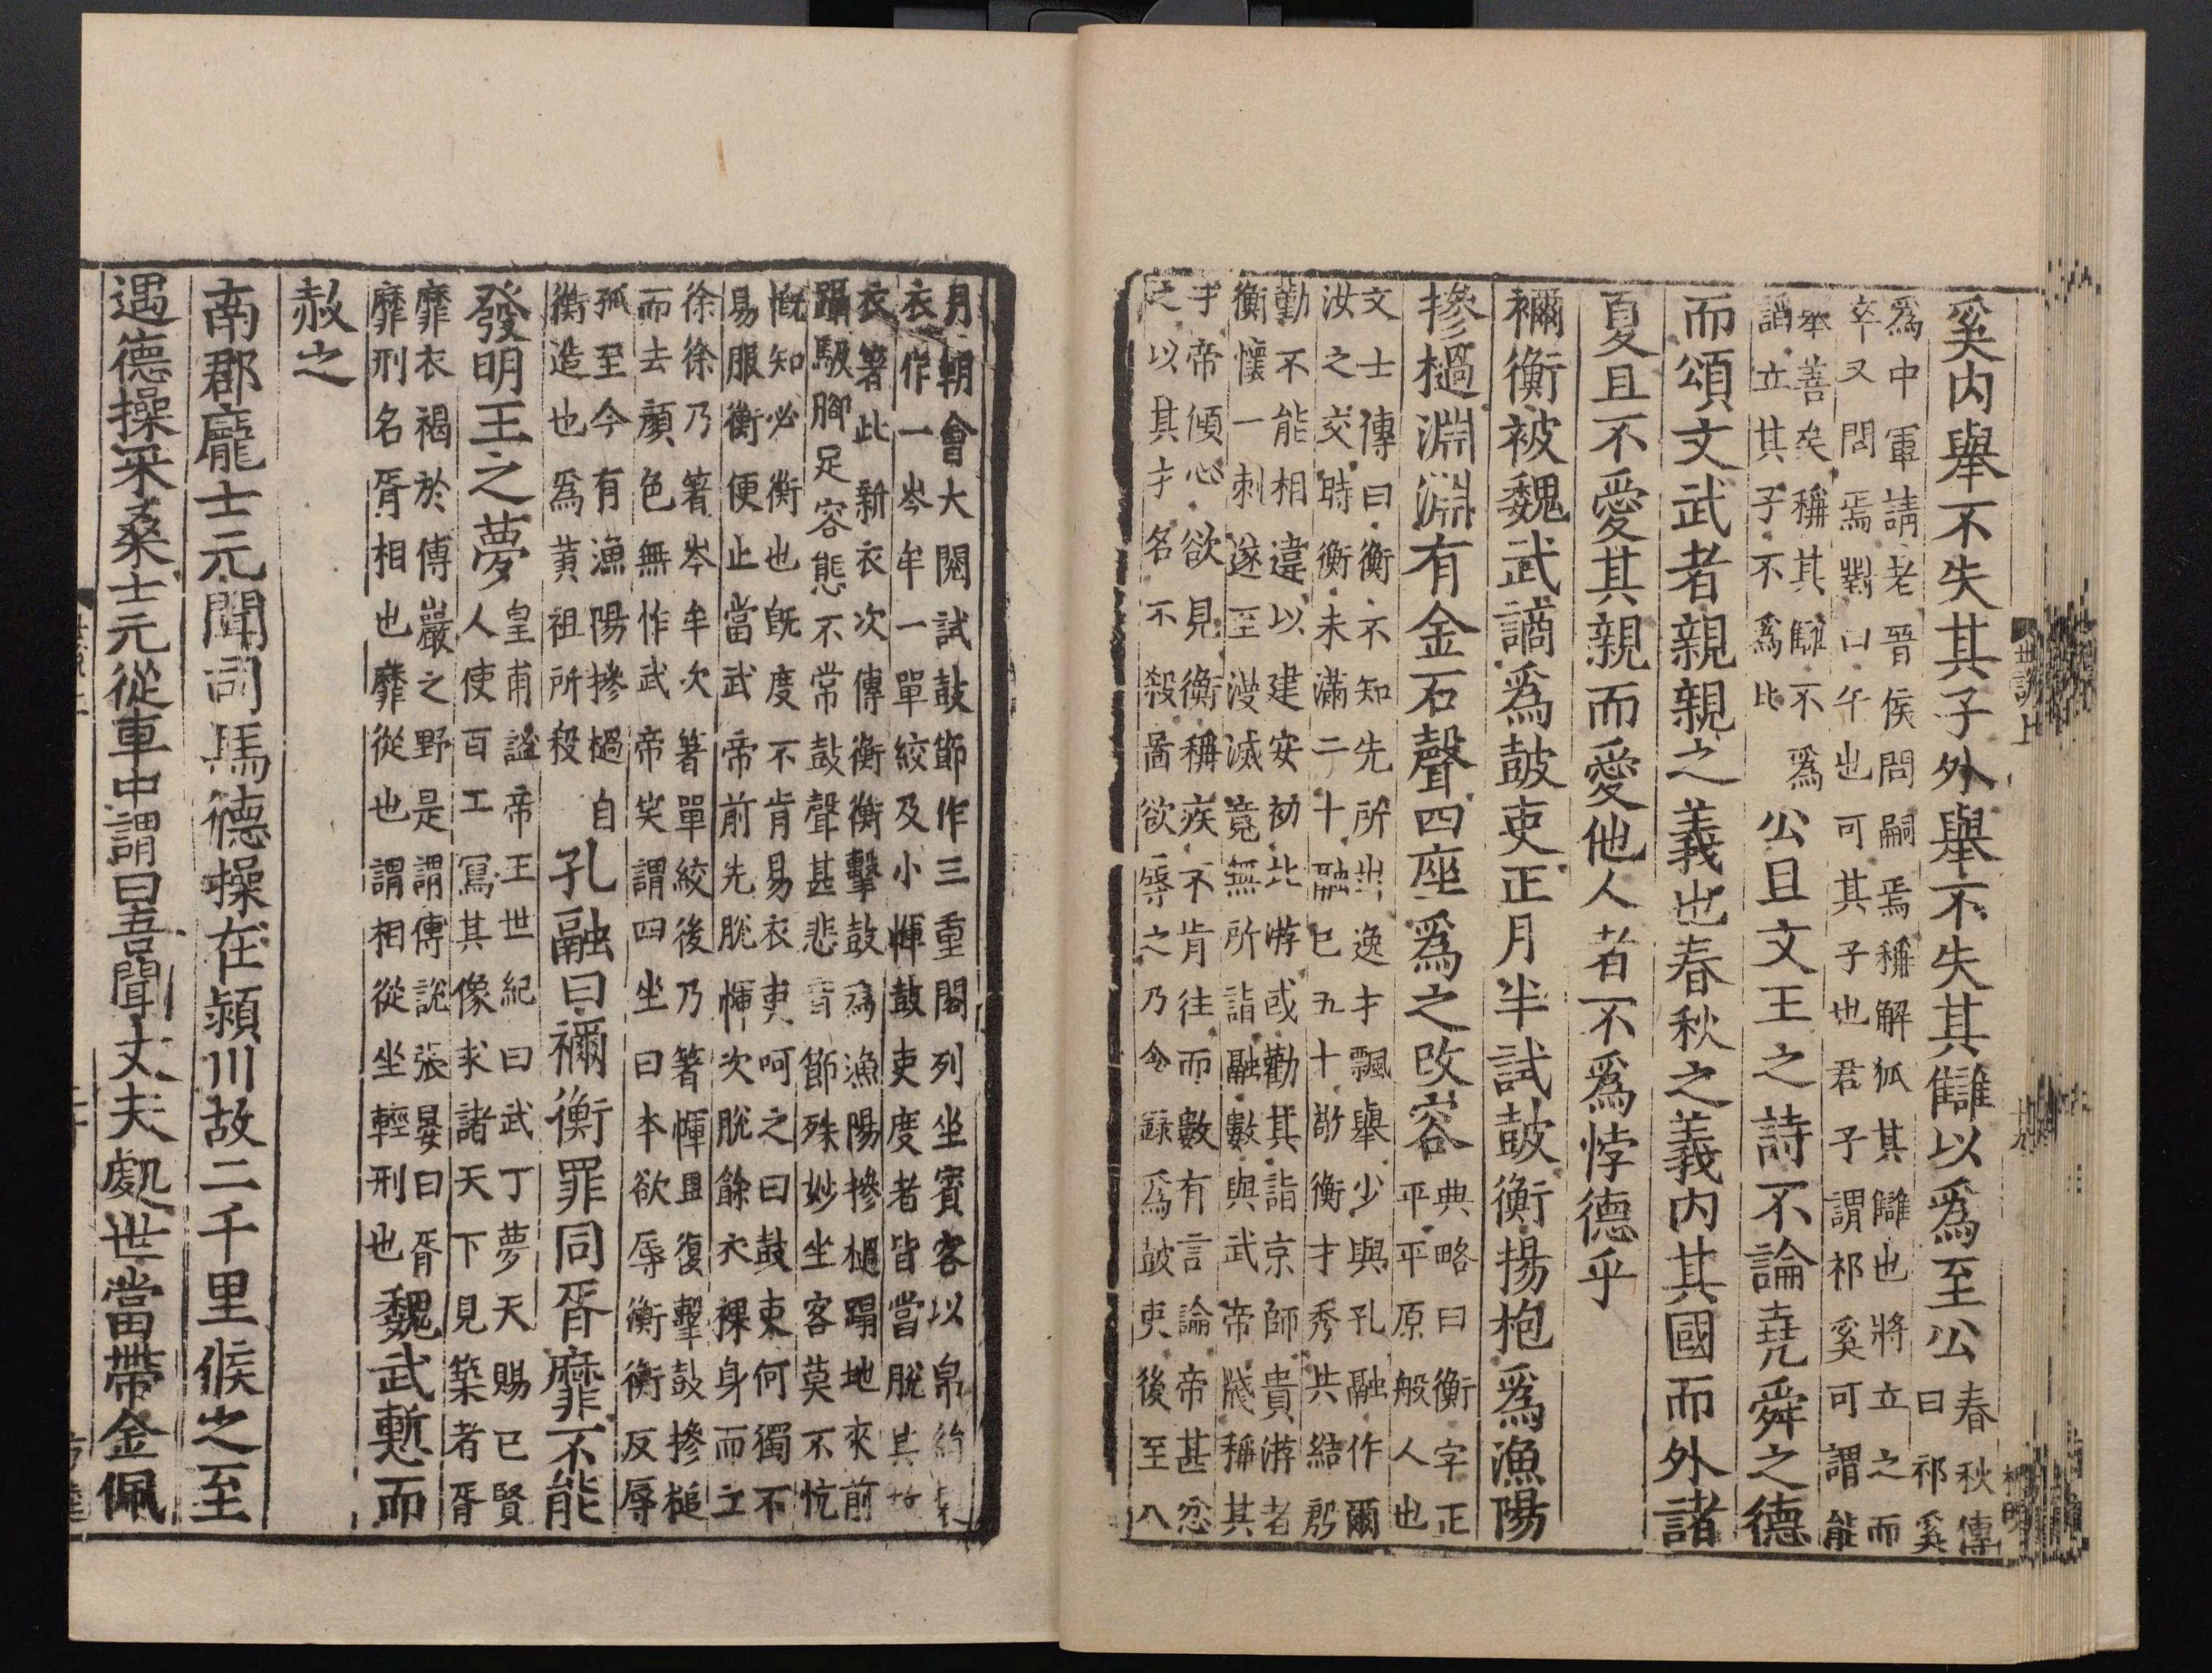 奚内舉不失其子外舉不失其讎以爲至公春秋傳
曰祁奚
爲中軍請老晉侯問嗣焉稱解狐其讎也將立之而
卒又問焉對曰午也可其子也君子謂祁奚可謂能
舉善矣稱其讎不爲
謟立其子不爲比
公且文王之詩不論堯舜之德
而頌文武者親親之義也春秋之義内其國而外諸
夏且不愛其親而愛他人者不爲悖德乎
禰衡被魏武謫爲鼓吏正月半試鼓衡揚枹爲漁陽
摻檛淵淵有金石聲四座爲之改容
典略曰衡字正
平平原般人也
文士傳曰衡不知先所出逸才飄舉少與孔融作爾
汝之交時衡未滿二十融已五十敬衡才秀共結殷
勤不能相違以建安初北游或勸其詣京師貴游者
衡懷一刺遂至漫滅竟無所詣融數與武帝牋稱其
才帝傾心欲見衡稱疾不肯往而數有言論帝甚忿
之以其才名不殺啚欲辱之乃令錄爲鼓吏後至八
世說上
月朝會大閱試鼓節作三重閣列坐賓客以帛絹製
衣作一岑牟一單絞及小㡓鼓吏度者皆當脫其故
衣著此新衣次傳衡衡擊鼓爲漁陽摻檛蹋地來前
躡馺腳足容態不常鼓聲甚悲音節殊妙坐客莫不忼
慨知必衡也旣度不肯易衣吏呵之曰鼓吏何獨不
易服衡便止當武帝前先脫㡓次脫餘衣裸身而立
徐徐乃著岑牟次著單絞後乃著㡓畢復擊鼓摻槌
而去顏色無怍武帝笑謂四坐曰本欲辱衡衡反辱
孤至今有漁陽摻檛自
衡造也爲黃祖所殺
孔融曰禰衡罪同胥靡不能
發明王之夢
皇甫謐帝王世紀曰武丁夢天賜已賢
人使百工寫其像求諸天下見築者胥
靡衣褐於傅巖之野是謂傅說張晏曰胥
靡刑名胥相也靡從也謂相從坐輕刑也
魏武慙而
赦之
南郡龐士元聞司馬德操在潁川故二千里候之至
遇德操采桑士元從車中謂曰吾聞丈夫處世當帶金佩